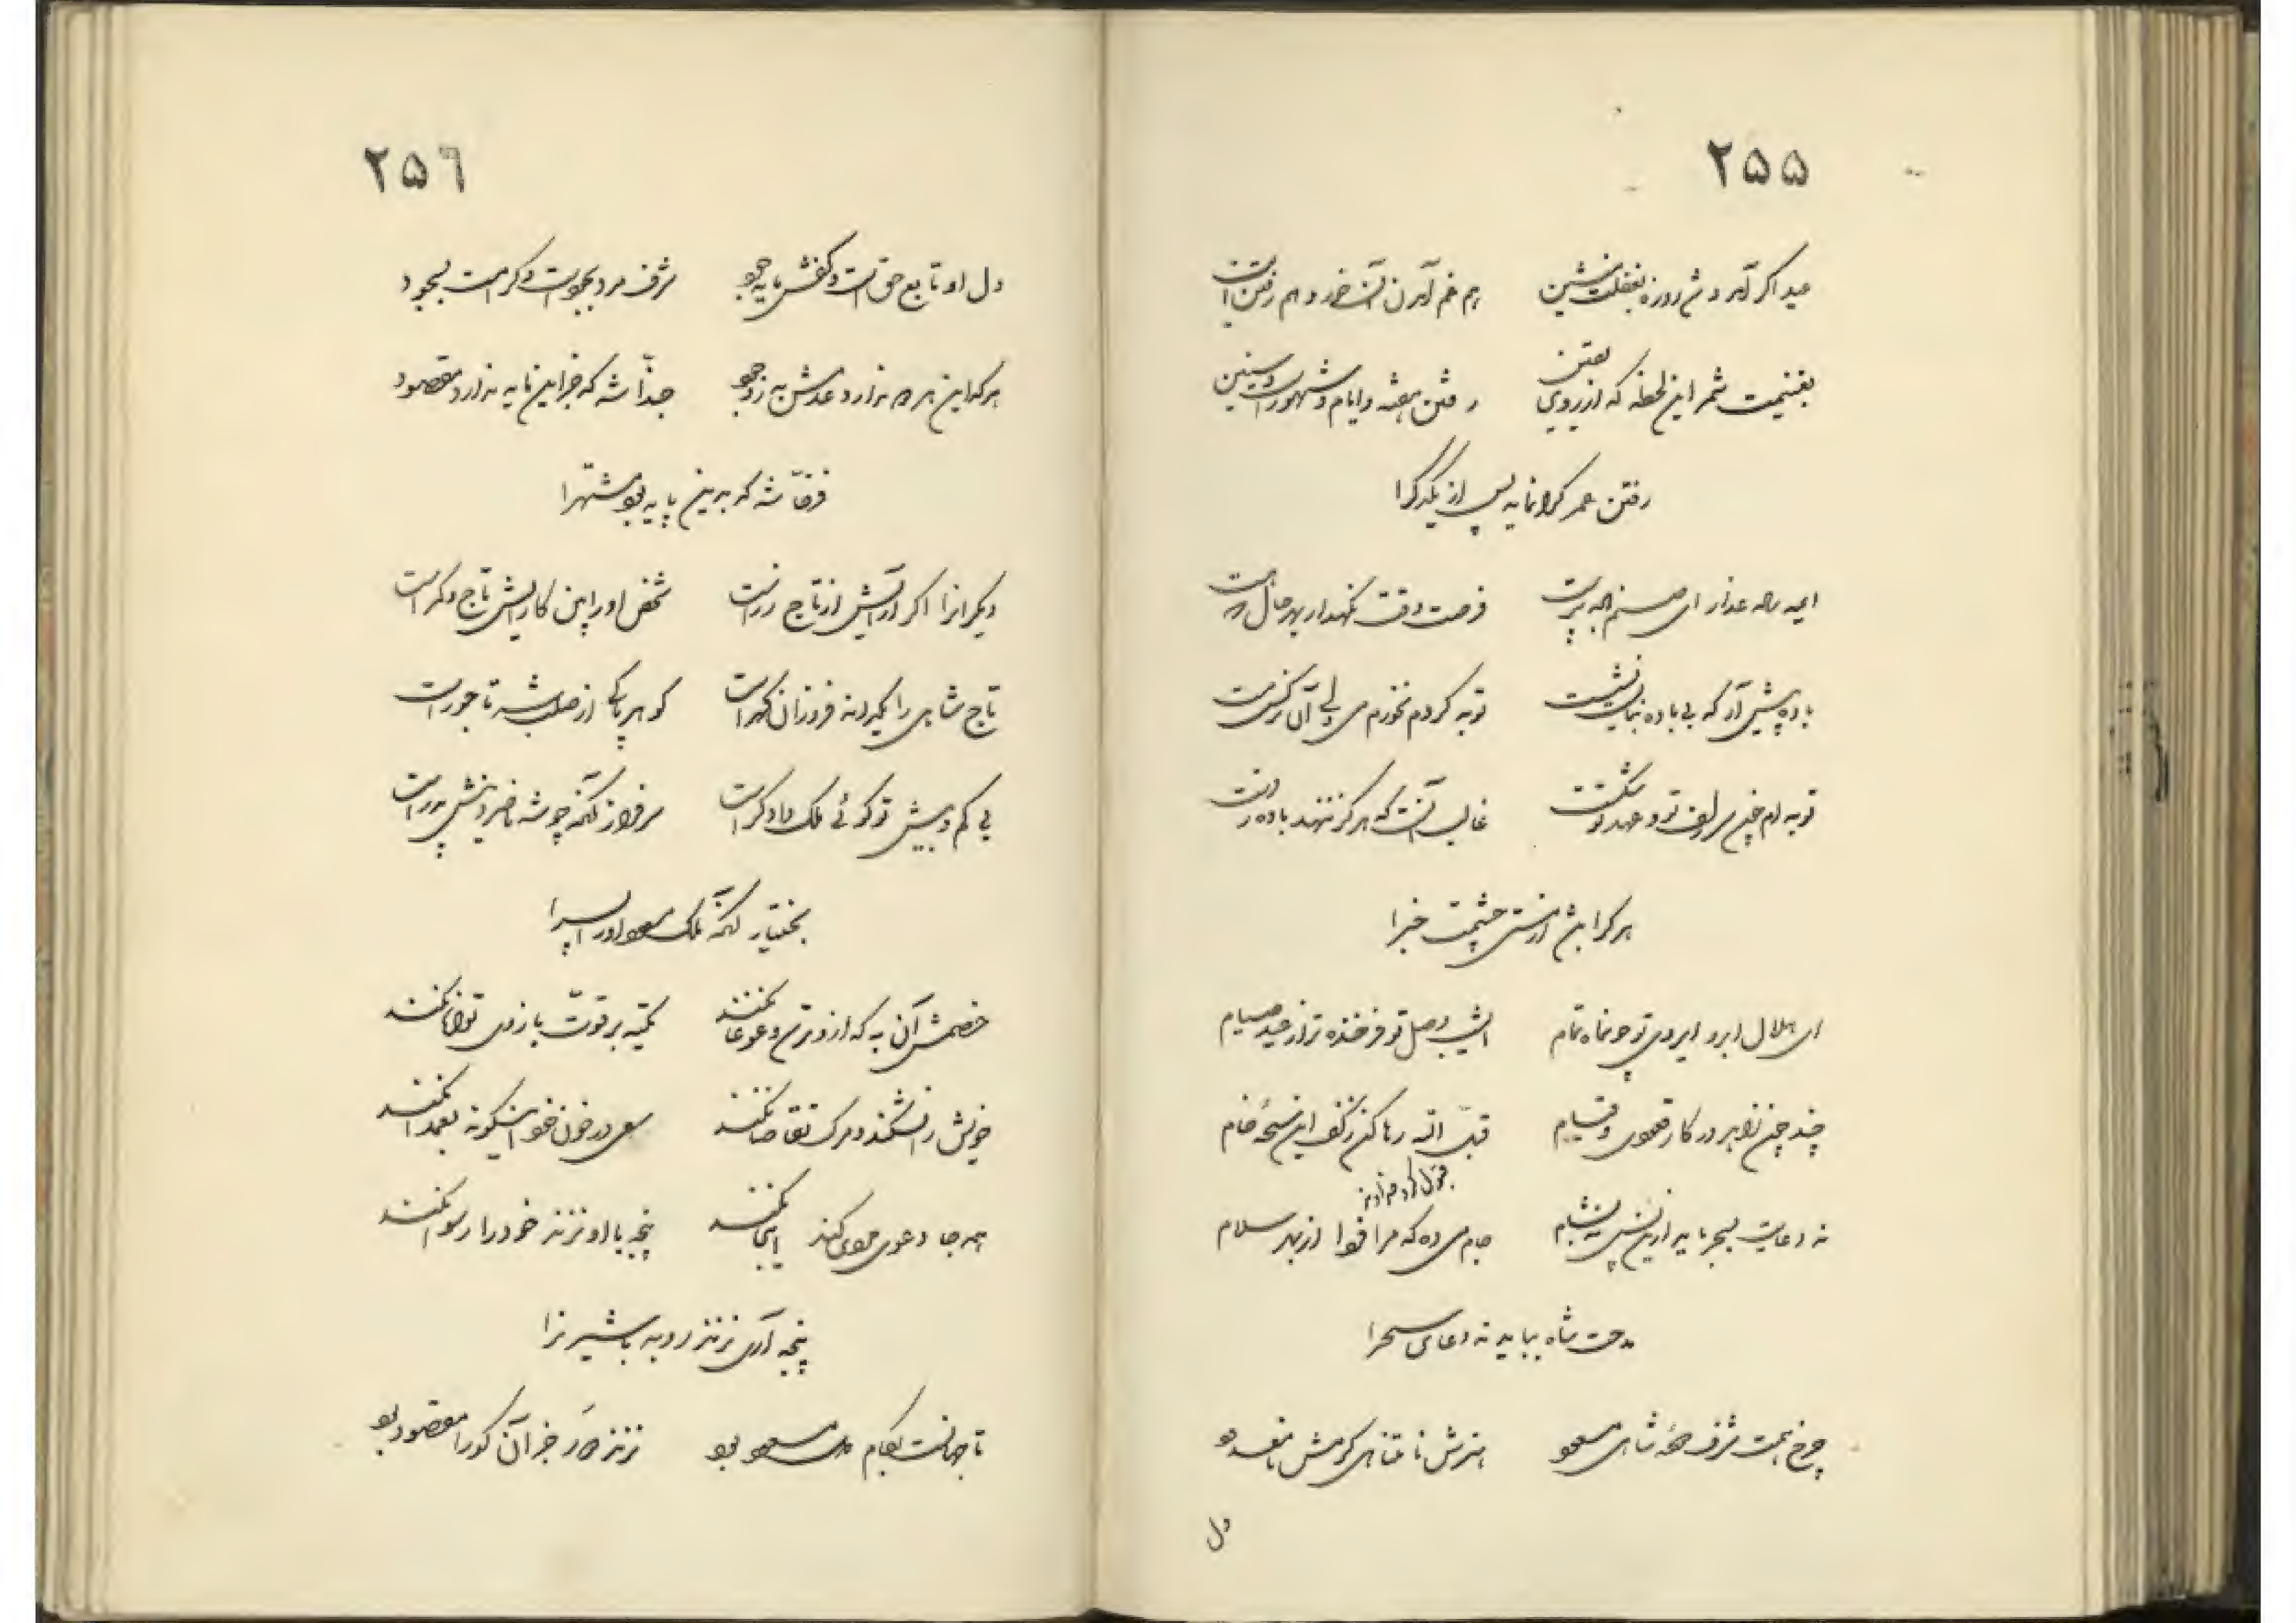 ۲۵۵
عید اگر آمد و شد روزه بغفلت منشین
هم غم آمدن آن خور و هم رفتن این
بغنیمت شمر این لحظه که از روی یقین
رفتن هفته و ایام و شهور است و سنین
رفتن عمر گرانمایه پس از یکدگرا
ایمه ساده عذار ای صنم باده پرست
فرصت وقت نگهدار بهر حال که هست
باده پیش آر که بی باده نمیباید نشست
توبه کردم نخورم می ولی آن نرگس مست
توبه ام چون سر زلف تو و عهد تو شکست
غالب آنست که هرگز ننهد باده ز دست
هر کرا باشد از مستی چشمت خبرا
ای هلال ابرو ابروی تو چون ماه تمام
ای شب وصل تو فرخنده تر از عید صیام
چند چون زاهد در کار قعودی و قیام
قبل الله رها کن ز کف این سبحه خام
نه دعایت بسحر باید ازین پس نه بشام
جام می ده که مرا از بهر سلام
مدحت شاه بباید نه دعای سحرا
چرخ همت شرف شاهی مسعود
هنرش نامتناهی کرمش نامعدود
دل
۲۵۶
دل او تابع حق است و کفش مایه جود
شرف مرد بجود است و کرامت بسجود
هر که این هر دو ندارد عدمش به ز وجود
حبذا شه که جز این نایه ندارد مقصود
فرخا شه که بدین پایه بود مشتهرا
دیگرانرا اگر آرایش از تاج زر است
شخص او را بین کارایش تاج و کمر است
تاج شاهی را یکدانه فروزان گهر است
گوهر پاکی از صلب شه تاجور است
بی کم و بیش تو گوئی ملک دادگر است
سرفراز آنکه چو شه ناصر دانش پرور است
بختیار آنکه ملک مسعود او را پسرا
خصمش آن به که ازو ترسد و غوغا نکند
تکیه بر قوت بازوی توانا نکند
خویش را نشکند و مرگ تقاضا نکند
سعی در خون خود اینگونه بعمدا نکند
همه جا دعوی مردی کند اینجا نکند
پنجه با او نزند خود را رسوا نکند
پنجه آری نزند روبه با شیر نرا
تا جهانست بکام ملک مسعود بود
نزند دم جز آن کو را مقصود بود